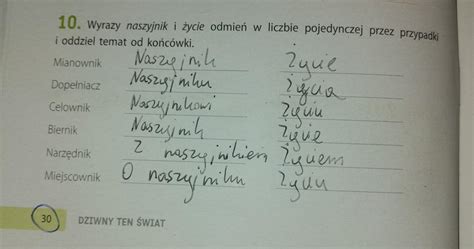 10. Wyrazy naszyjnik i życie odmień w liczbie pojedynczej przez przypadki
i oddziel temat od końcówki.
Mianownik Naszyjnik Życie
Dopełniacz Naszyjniku Życia
Celownik Naszyjnikowi Życiu
Biernik Naszyjnik Życie
Narzędnik Z naszyjnikiem Życiem
Miejscownik O naszyjniku Życiu
30 DZIWNY TEN ŚWIAT